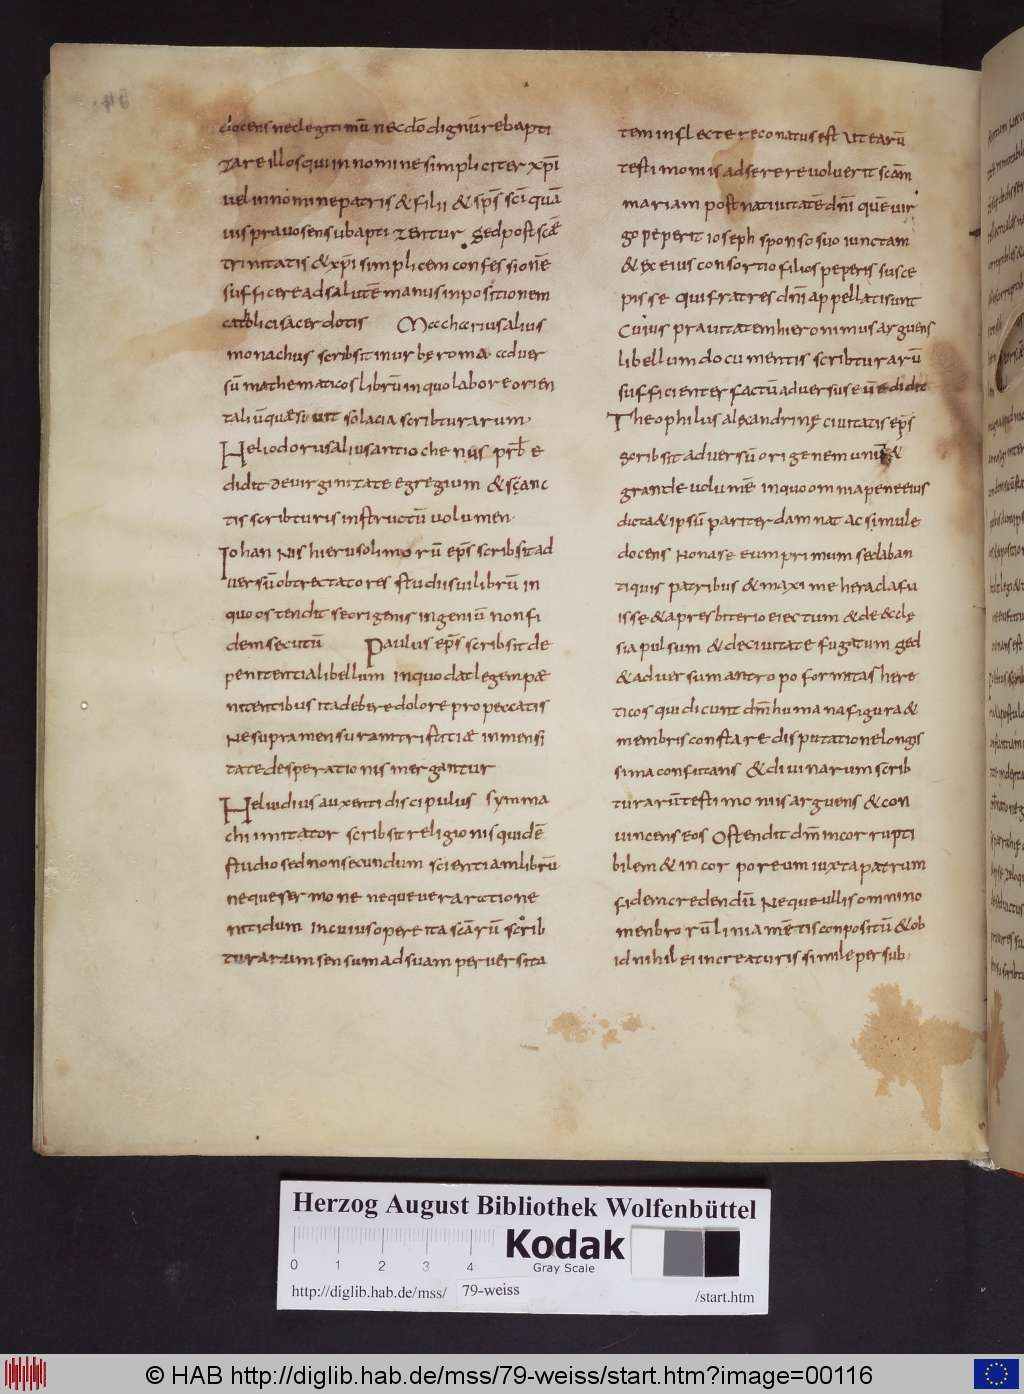 docens nec legitimū nec dō dignū rebapti
zare illos qui in nomine simpliciter xp̄i
vel in nomine patris & filii & sp̄s sc̄i quā
vis pravo sensu baptizentur. Sed post scāe
trinitatis & xp̄i simplicem confessionē
sufficere ad salutē manus inpositionem
catholici sacerdotis Maccharius alius
monachus scribsit in urbe roma adver
sū mathematicos librū in quo labore orien
taliū quæsivit solacia scribturarum.
Heliodorus alius antiochenus prb̄ e
didit de virginitate egregium & scānc
tis scribturis instructū volumen.
Iohannis hierusolimorū ep̄s scribsit ad
versū obtrectatores studii sui librū in
quo ostendit se origenis ingeniū non fi
dem secutū Paulus ep̄s scribsit de
penitentia libellum in quo dat legem pæ
nitentibus ita debere dolore pro peccatis
ne supra mensuram tristitiæ inmensi
tate desperationis mergantur
Helvidius auxenti discipulus symma
chi imitator scribsit religionis quidē
studio sed non secundum scientiam librū
neque sermone neque vera ratione
nitidum in cuius opere ita scārū scrib
turarum sensum ad suam perversita
tem inflectere conatus est ut earū
testimoniis adserere voluerit scām
mariam post nativitatē dn̄i quē vir
go peperit ioseph sponso suo iunctam
& ex eius consortio filios peperisse susce
pisse qui fratres dn̄i appellati sunt
Cuius pravitatem hieronimus arguens
libellum documentis scribturarū
sufficienter factū adversus eū edidit
Theophilus alexandrinę civitatis ep̄s
scribsit adversū origenem unū &
grande volumē in quo omnia pene eius
dicta & ipsū pariter damnat ac simul e
docens non a se eum primum sed ab an
tiquis patribus & maxime heracla fu
isse & a presbiterio eiectum & de ecclę
sia pulsum & de civitate fugatum sed
& adversum antropoformitas here
ticos qui dicunt dm̄ humana figura &
membris constare disputatione longis
sima confutans & divinarum scrib
turarū testimoniis arguens & con
vincens eos Ostendit dm̄ incorrupti
bilem & incorporeum iuxta patrum
fidem credendū Neque ullis omnino
membrorū liniamētis conpositū & ob
id nihil ei in creaturis simile per sub.
Herzog August Bibliothek Wolfenbüttel
0 1 2 3 4
Kodak
Gray Scale
http://diglib.hab.de/mss/ 79-weiss /start.htm
© HAB http://diglib.hab.de/mss/79-weiss/start.htm?image=00116